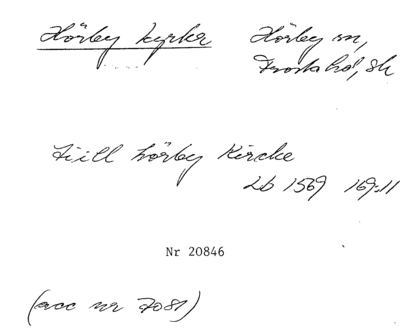 Hörby kyrka Hörby sn,
Frosta hd, Sk
tiill hörby Kircke
Lb 1569 169:11
Nr 20846
(acc nr 7081)